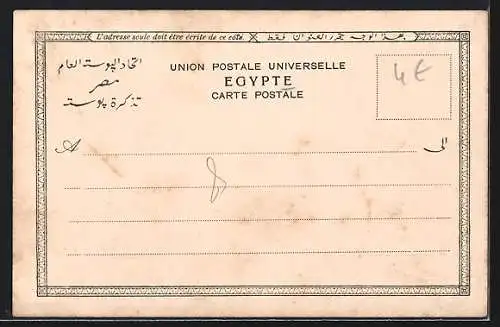 L'adresse seule doit être écrite de ce côté. هذا الوجه يحرر العنوان فقط
اتحاد البوستة العام
مصر
تذكرة بوسته
UNION POSTALE UNIVERSELLE
EGYPTE
CARTE POSTALE
4€
A الى
8